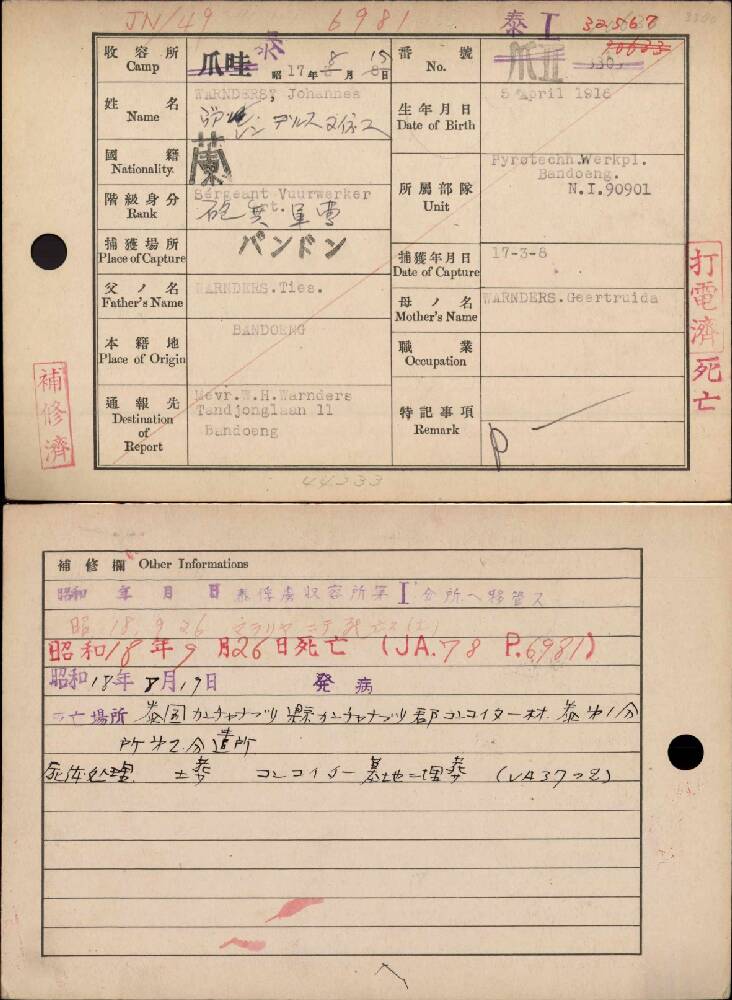 JN/49 6981 泰I 32567
收容所 Camp 爪哇 泰 昭17年8月15日
番號 No. 爪II 3303
姓名 Name WARNDERS, Johannes
生年月日 Date of Birth 5 April 1916
國籍 Nationality 蘭
階級身分 Rank Sergeant Vuurwerker
Art. 砲兵軍曹
所属部隊 Unit Pyrotechn.Werkpl.
Bandoeng.
N.I.90901
捕獲場所 Place of Capture バンドン
捕獲年月日 Date of Capture 17-3-8
父ノ名 Father's Name WARNDERS.Ties.
母ノ名 Mother's Name WARNDERS.Geertruida
本籍地 Place of Origin BANDOENG
職業 Occupation
通報先 Destination of Report Mevr.W.H.Warnders
Tandjonglaan 11
Bandoeng
特記事項 Remark P
補修濟
打電濟
死亡
44233
補修欄 Other Informations
昭和 年 月 日 泰俘虜収容所第I分所へ移管ス
昭18.9.26 マラリヤニテ死亡
昭和18年9月26日死亡 (JA.78 P.6981)
昭和18年8月19日 発病
死亡場所 泰国カンチャナブリ県カンチャナブリ郡コンコイター村 泰第1分
所第2分遣所
死体処理 土葬 コンコイター墓地ニ埋葬